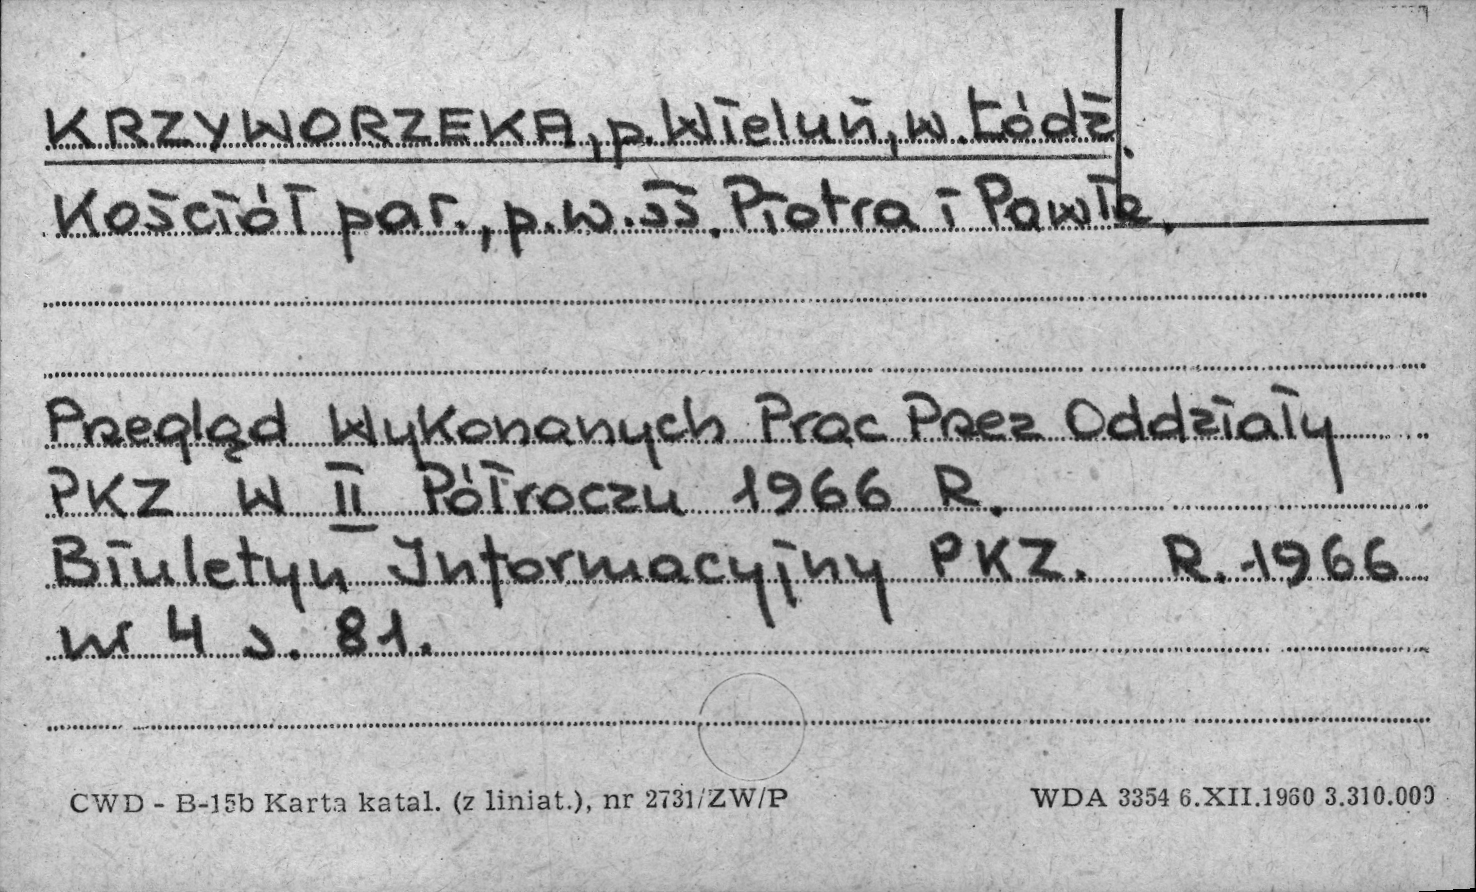 KRZYWORZEKA, p. Wieluń, w. Łódź.
Kościół par., p.w. ŚŚ. Piotra i Pawła.
Przegląd Wykonanych Prac Przez Oddziały
PKZ W II Półroczu 1966 R.
Biuletyn Informacyjny PKZ. R. 1966
nr 4 s. 81.
CWD - B-15b Karta katal. (z liniat.), nr 2731/ZW/P
WDA 3354 6.XII.1960 3.310.000